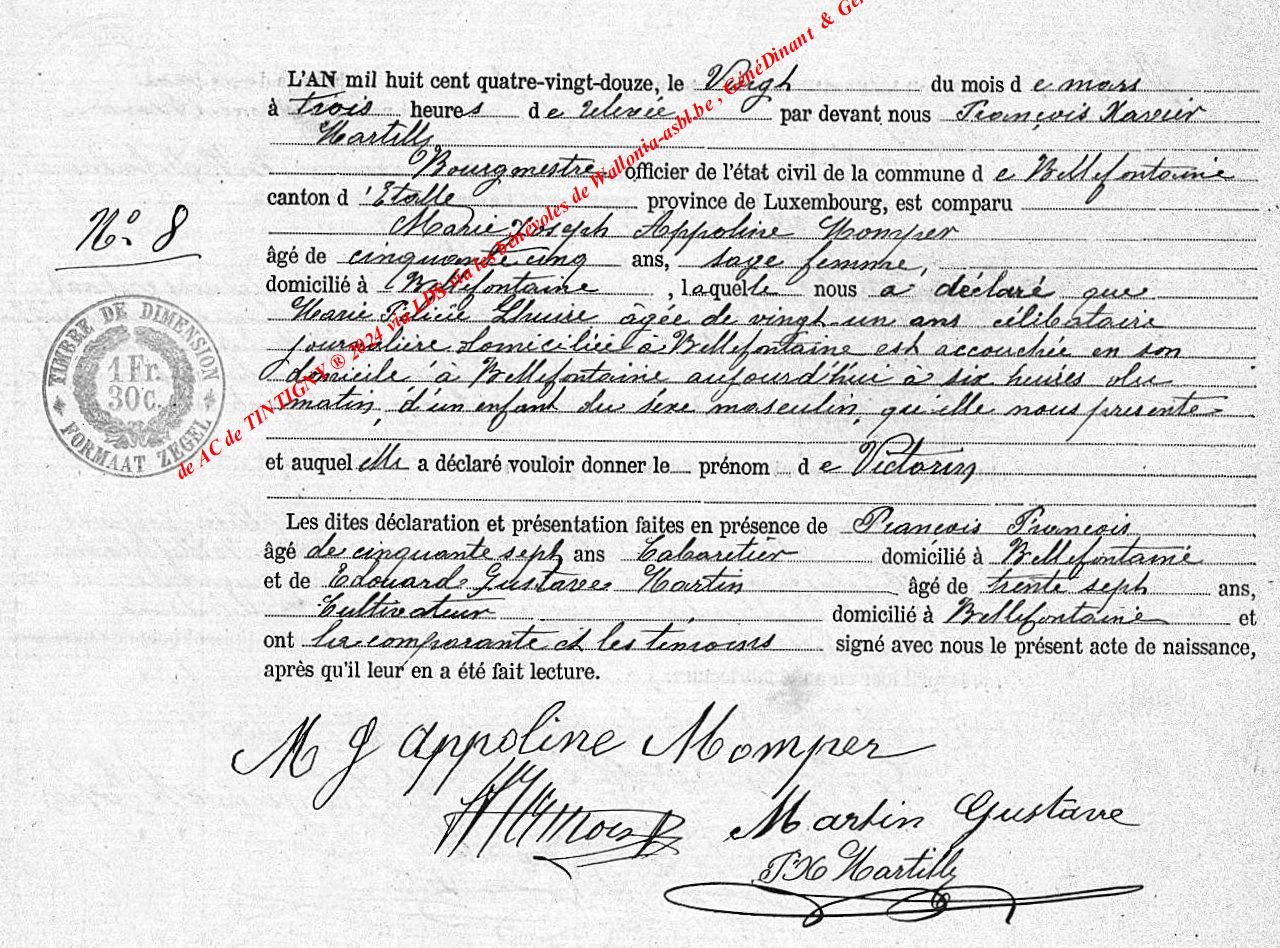 L'AN mil huit cent quatre-vingt-douze, le Vingt du mois de mars
à trois heures de relevée par devant nous François Xavier
Martilly
Bourgmestre officier de l'état civil de la commune de Bellefontaine
canton d'Etalle province de Luxembourg, est comparu
Marie Joseph Appoline Momper
âgé de cinquante cinq ans, sage femme,
domicilié à Bellefontaine, laquelle nous a déclaré que
Marie Félicie âgée de vingt-un ans célibataire
journalière domiciliée à Bellefontaine est accouchée en son
domicile à Bellefontaine aujourd'hui à six heures du
matin, d'un enfant du sexe masculin, qu'elle nous présente
et auquel elle a déclaré vouloir donner le prénom de Victorin
Les dites déclaration et présentation faites en présence de François François
âgé de cinquante sept ans Cabaretier domicilié à Bellefontaine
et de Edouard Gustave Martin âgé de trente sept ans,
Cultivateur domicilié à Bellefontaine et
ont la comparante et les témoins signé avec nous le présent acte de naissance,
après qu'il leur en a été fait lecture.
N° 8
TIMBRE DE DIMENSION
1 Fr.
30 C.
FORMAAT ZEGEL
M J Appoline Momper
Martin Gustave
FX Martilly
de AC de TINTIGNY ® 2024 via LDS via les bénévoles de Wallonia-asbl.be, GénéDinant &